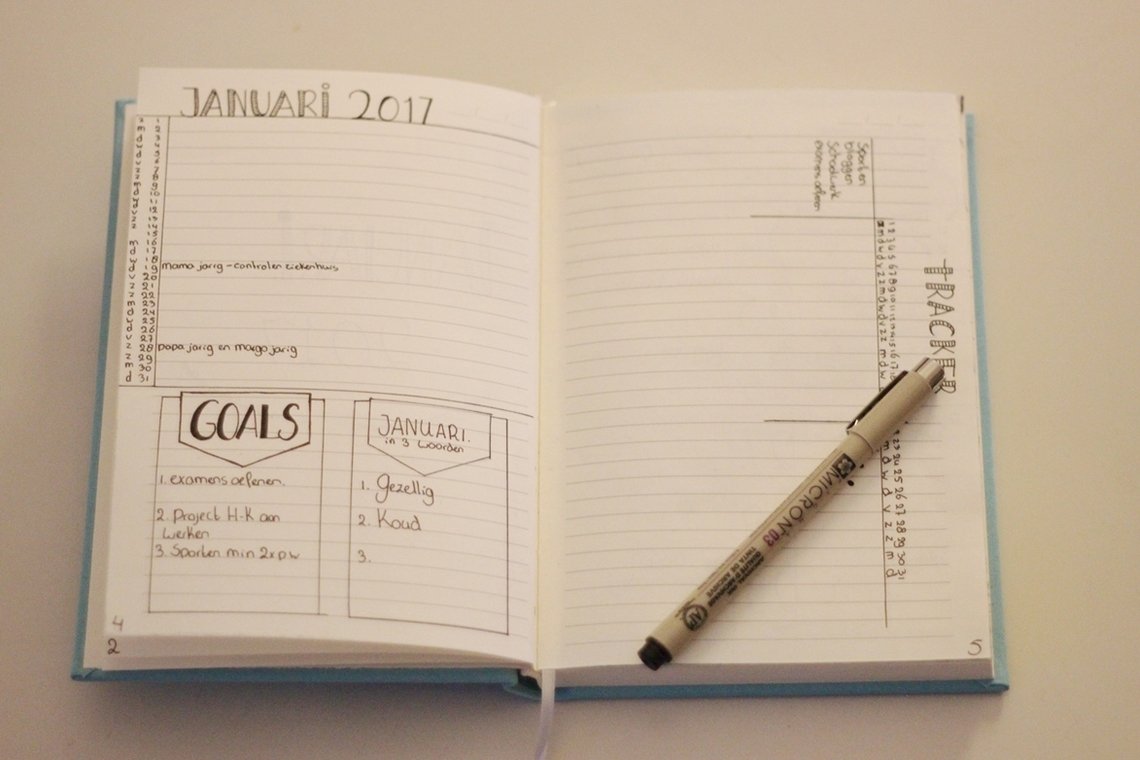 JANUARI 2017
mama jarig - controle ziekenhuis
28 papa jarig en margo jarig
29
30
d 31
GOALS
1. examens oefenen.
2. Project H-K aan
werken
3. Sporten min 2x pw
JANUARI.
in 3 woorden
1. Gezellig
2. Koud
3.
4
2
TRACKER
Sporten
bloggen
Schoolwerk
examens oefenen
1 2 3 4 5 6 7 8 9 10 11 12 13 14 15 16 17 18
24 25 26 27 28 29 30 31
m d w d v z z m d
MICRON 03
5